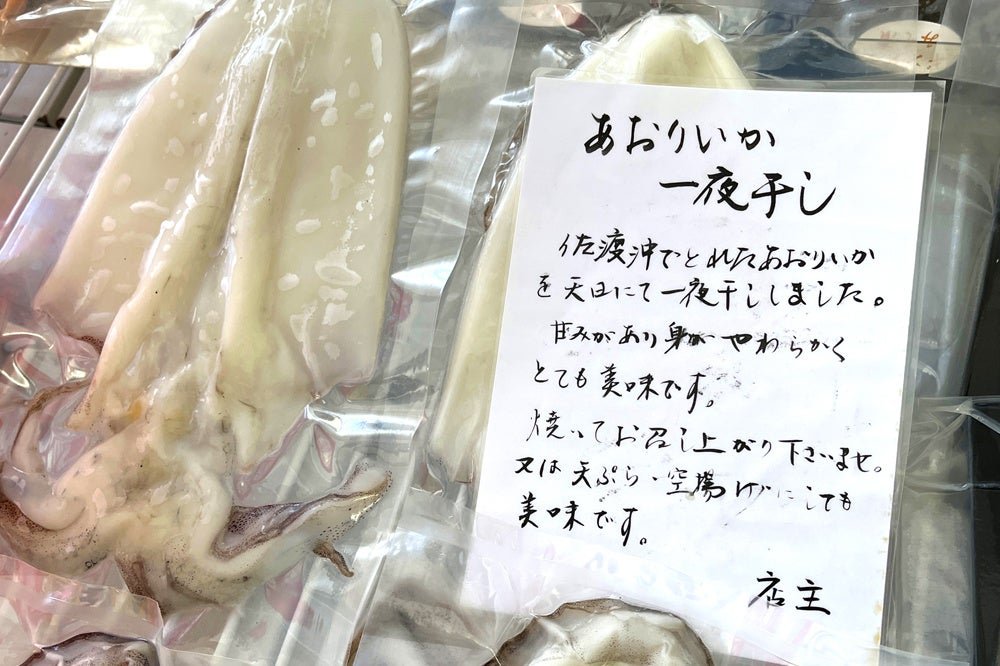 あおりいか
一夜干し
佐渡沖でとれたあおりいか
を天日にて一夜干ししました。
甘みがあり身がやわらかく
とても美味です。
焼いてお召し上がり下さいませ。
又は天ぷら・空揚げにしても
美味です。
店主